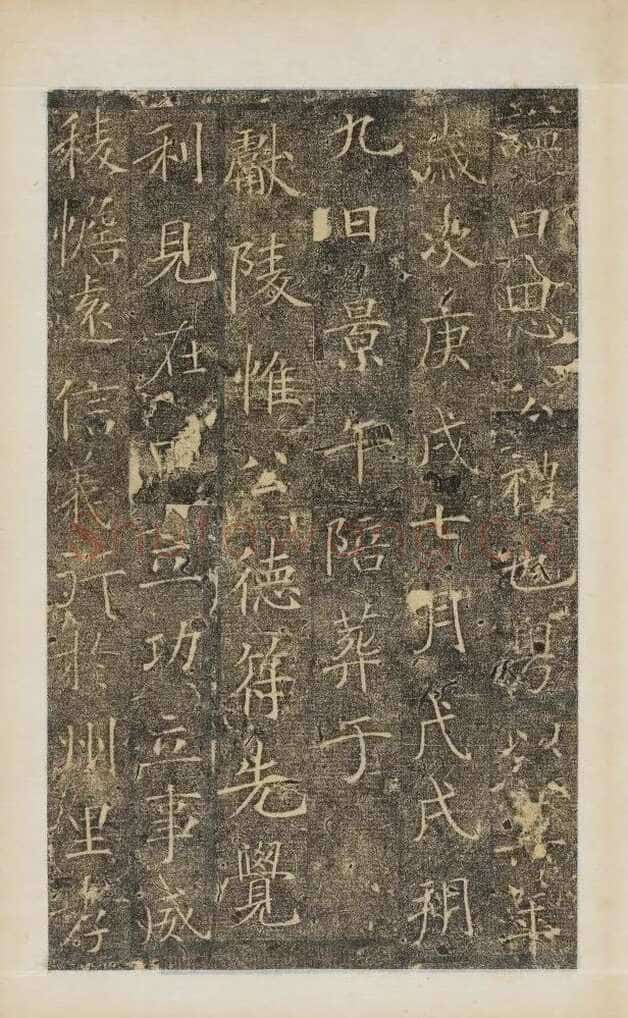 曰思公禮也粵以其年
歲次庚戌七月戊戌朔
九日景午陪葬于
獻陵惟公德符先覺
利見在立功立事威
稜憺遠信義行於州里孝